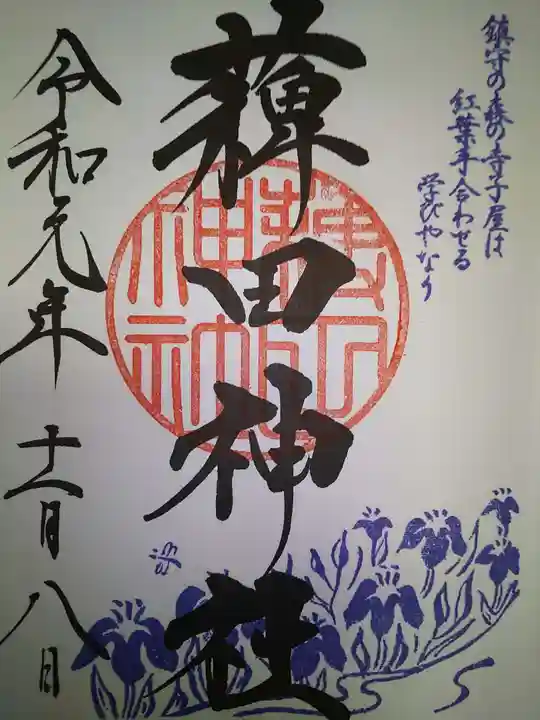 鎮守の森の寺子屋は
紅葉手合わせる
学びやなり
薭田神社
令和元年 十一月八日